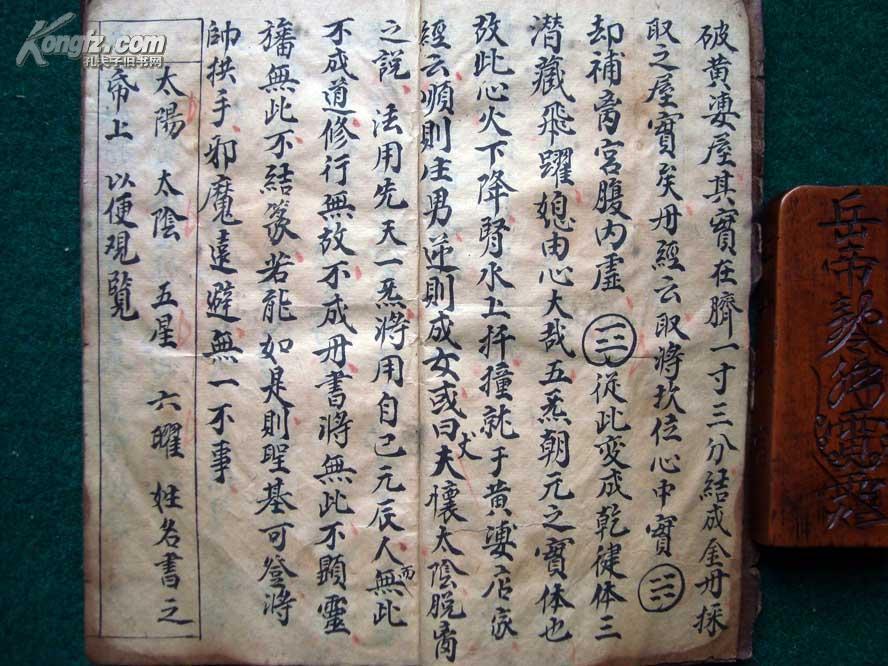 破黃婆屋其實在臍一寸三分結成金丹採
取之屋實矣丹經云取將坎位心中實
却補离宮腹內虛 從此変成乾健体三
潜藏飛躍総由心大哉五炁朝元之實体也
故此心火下降腎水上扞撞就于黃婆店家
經云順則生男逆則成女或曰丈夫懷太陰脫
之說 法用先天一炁將用自己元辰人無此
而不成道修行無故不成丹書將無此不顕靈
旛無此不結篆若能如是則聖基可登將
帥拱手邪魔遠避無一不事
太陽 太陰 五星 六曜 姓名書之
帛上 以便現覽
岳帝
Kongfz.com
孔夫子旧书网